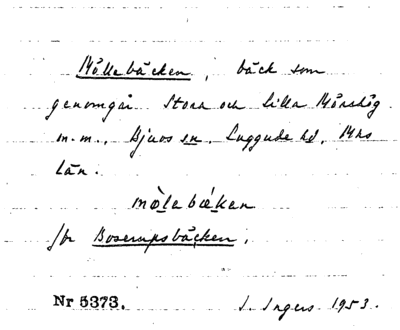 Möllebäcken, bäck som
genomgår Stora och Lilla Mörshög
m.m., Bjuvs sn, Luggude hd, Mhs
län.
mø̀lebæken
jfr Boserupsbäcken.
Nr 5373. I. Ingers 1953.